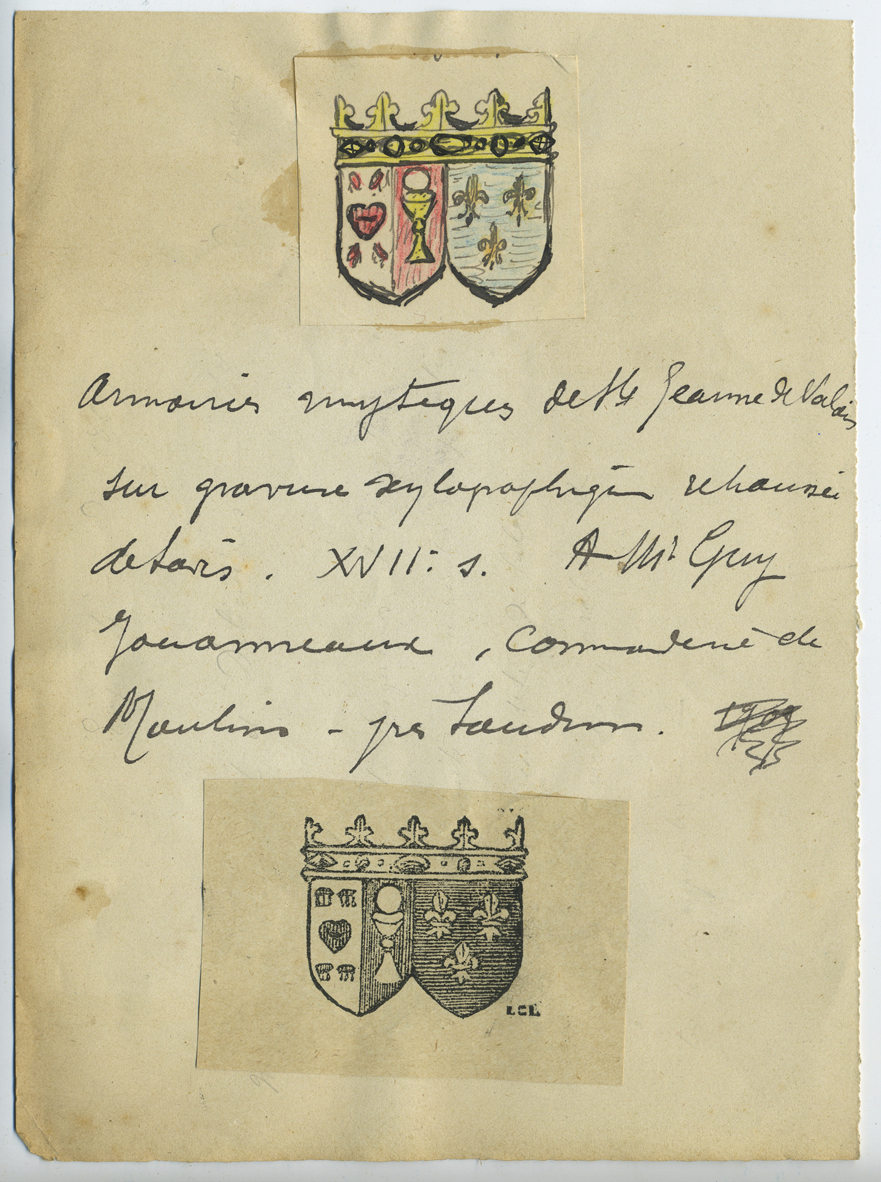 Armoiries mystiques de Ste Jeanne de Valois
sur gravure xylographique rehaussée
de . XVII: s. A Mr Guy
Jouanneaux, Commanderie de
Moulins - près .
LCL